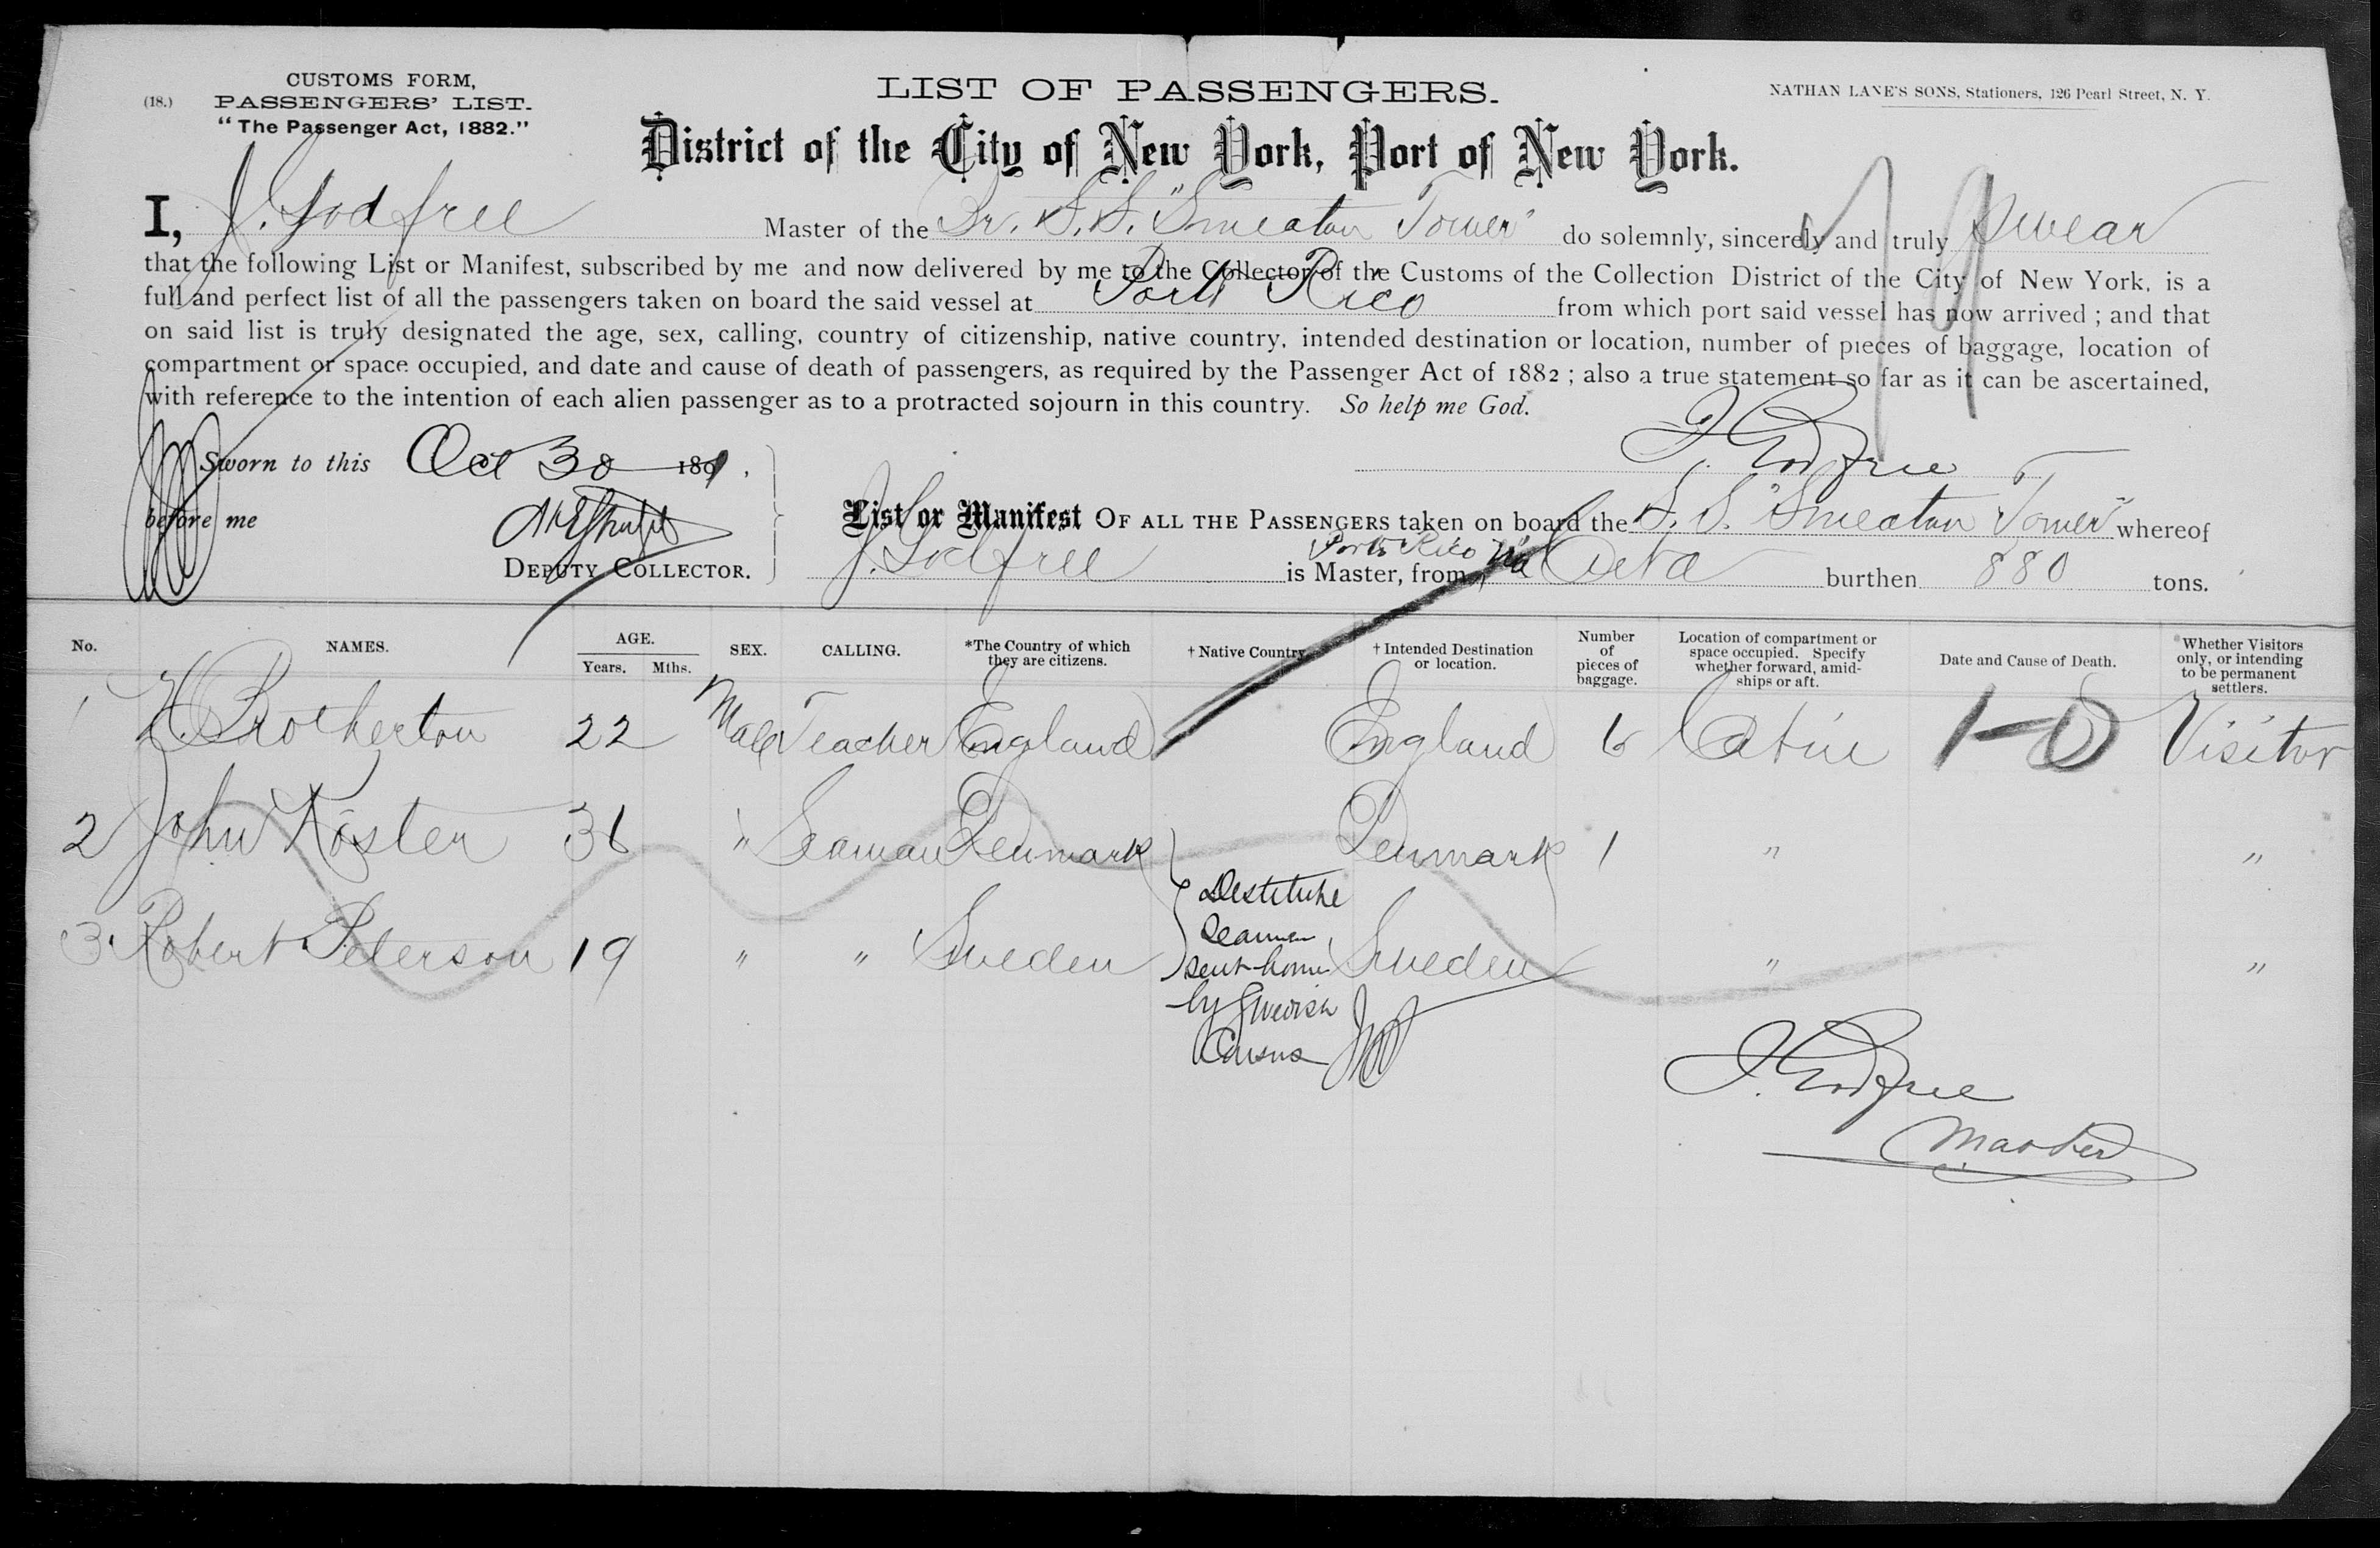 CUSTOMS FORM,
(18.) PASSENGERS' LIST.
"The Passenger Act, 1882."
LIST OF PASSENGERS.
NATHAN LANE'S SONS, Stationers, 126 Pearl Street, N. Y.
District of the City of New York, Port of New York.
I, J. Godfree Master of the Br. S.S. "Smeaton Tower" do solemnly, sincerely and truly Swear
that the following List or Manifest, subscribed by me and now delivered by me to the Collector of the Customs of the Collection District of the City of New York, is a
full and perfect list of all the passengers taken on board the said vessel at Porto Rico from which port said vessel has now arrived ; and that
on said list is truly designated the age, sex, calling, country of citizenship, native country, intended destination or location, number of pieces of baggage, location of
compartment or space occupied, and date and cause of death of passengers, as required by the Passenger Act of 1882 ; also a true statement so far as it can be ascertained,
with reference to the intention of each alien passenger as to a protracted sojourn in this country. So help me God.
Sworn to this Oct 30 1891. J. Godfree
before me
DEPUTY COLLECTOR.
List or Manifest OF ALL THE PASSENGERS taken on board the S. S. "Smeaton Tower" whereof
J. Godfree is Master, from Porto Rico via burthen 880 tons.
No. NAMES. AGE. Years. Mths. SEX. CALLING. *The Country of which they are citizens. † Native Country. † Intended Destination or location. Number of pieces of baggage. Location of compartment or space occupied. Specify whether forward, amidships or aft. Date and Cause of Death. *Whether Visitors only, or intending to be permanent settlers.
1 H. Brotherton 22 Male Teacher England England 6 Cabin 1-0 Visitor
2 John Köster 36 " Seaman Denmark Denmark 1 " "
3. Robert Peterson 19 " " Sweden Sweden " "
Destitute
Seamen
sent home
by Swedish
J. Godfree
Master